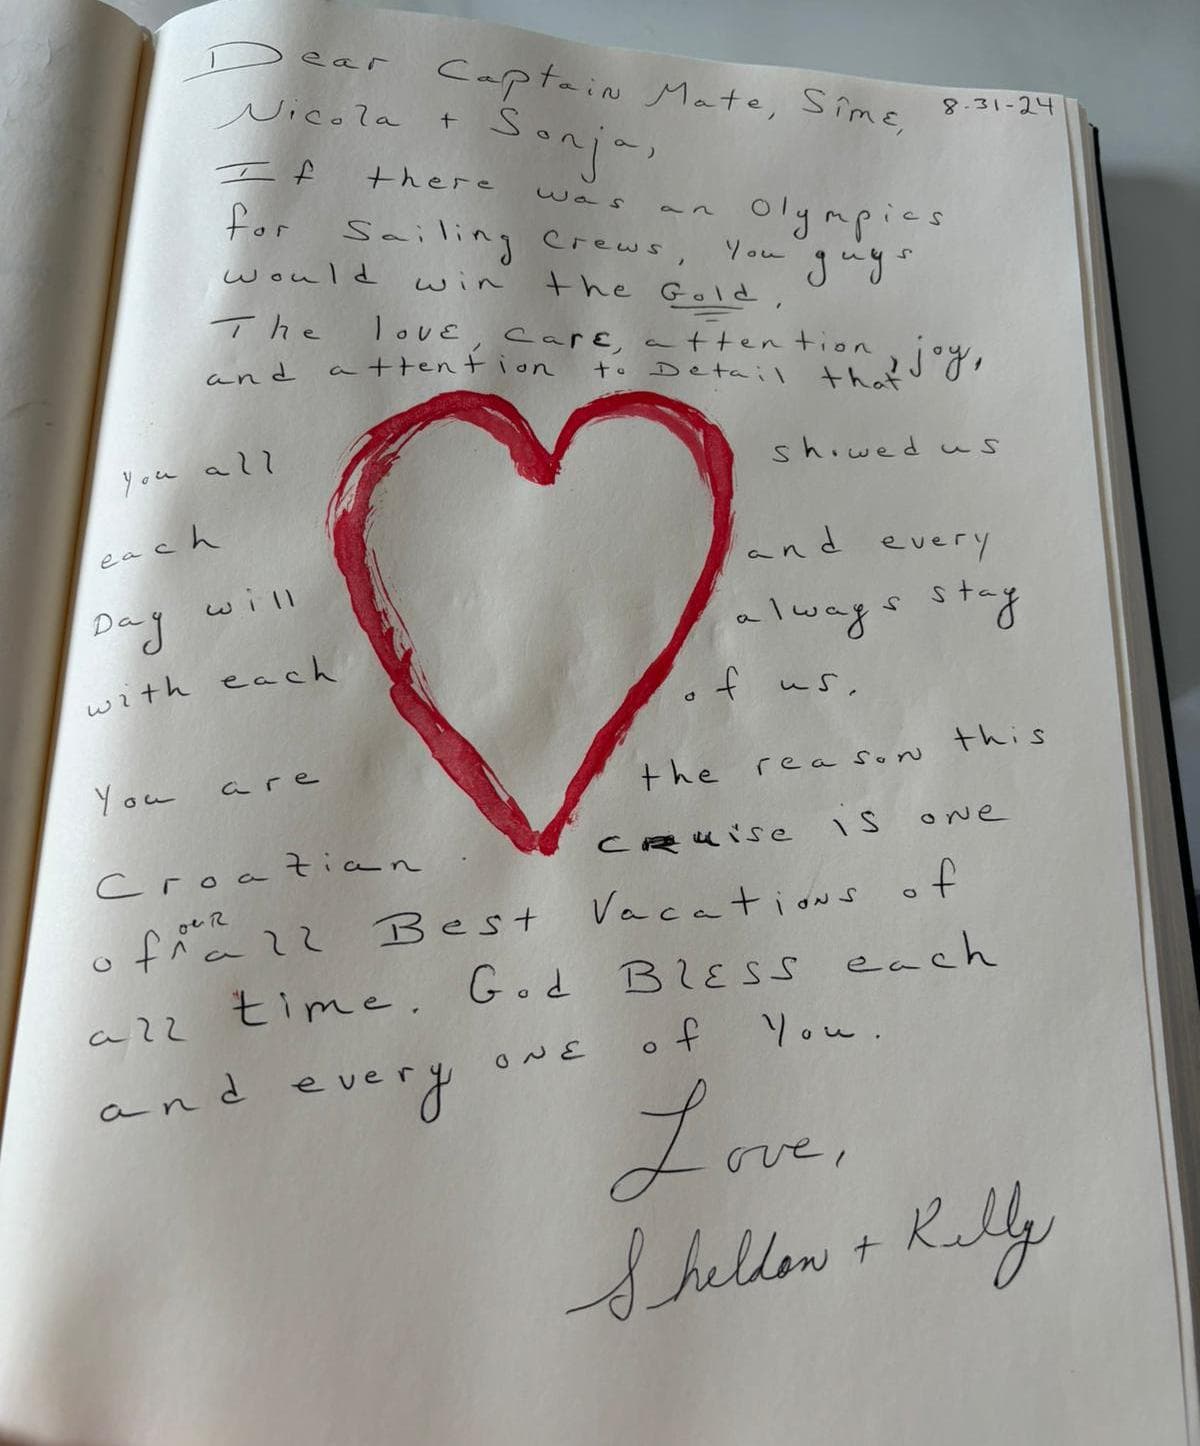 8-31-24
Dear Captain Mate, Sime,
Nicola + Sonja,
If there was an Olympics
for Sailing Crews, You guys
would win the Gold.
The love, care, attention, joy,
and attention to Detail that
you all showed us
each and every
Day will always stay
with each of us.
You are the reason this
Croatian cruise is one
of our all Best Vacations of
all time. God Bless each
and every one of You.
Love,
Sheldon + Kelly